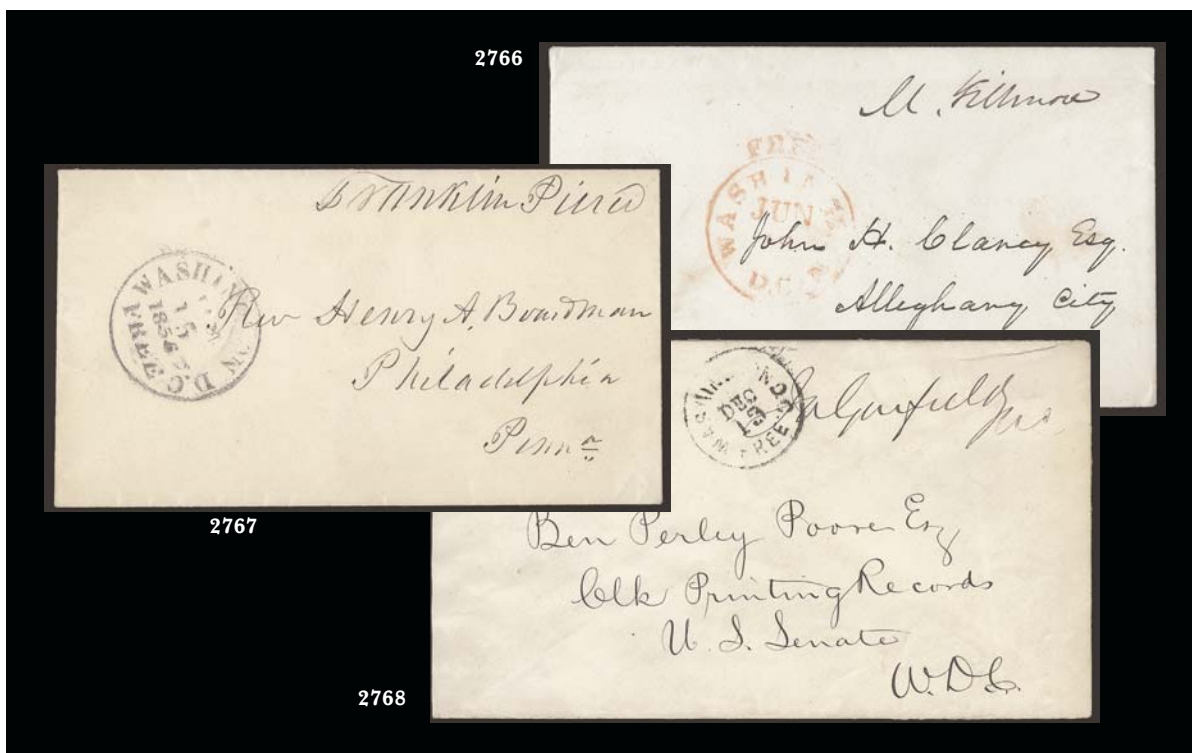 2766
M. Fillmore
FREE
WASHIN
JUN
D.C.
John H. Clancy Esq.
Alleghany City
Franklin Pierce
WASHIN N D.C.
15
185
FREE
Rev Henry A. Boardman
Philadelphia
Penna
2767
WASHIN ON D.C.
DEC
FREE
Garfield
Ben Perley Poore Esq
Clk Printing Records
U. S. Senate
W.D.C.
2768